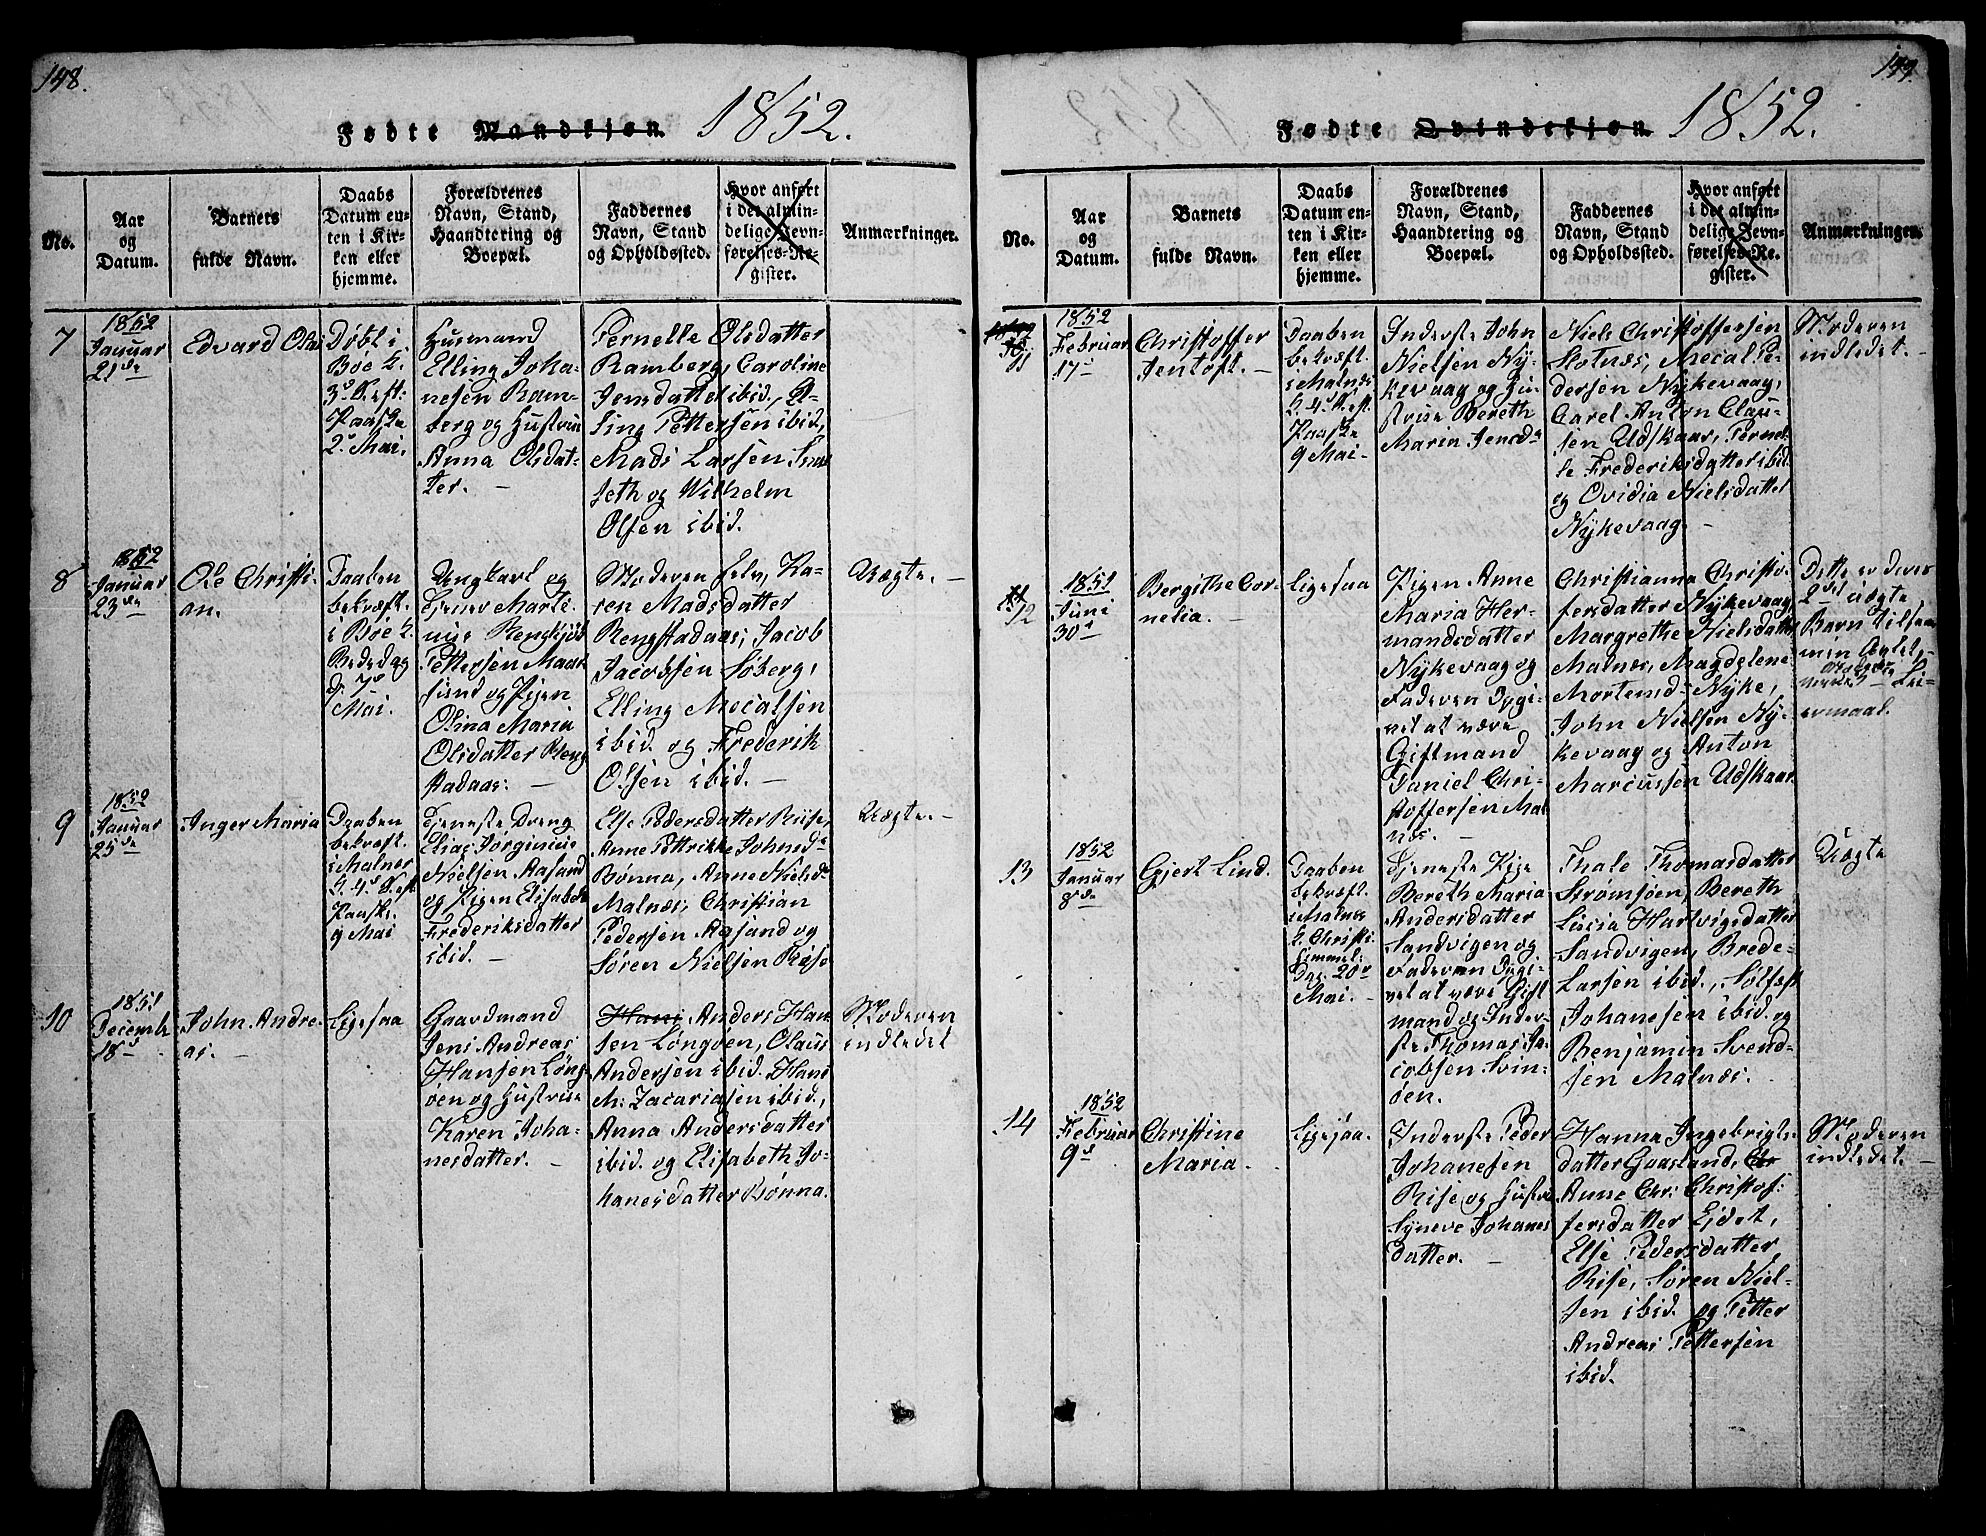 148.
Fødte Mandkjøn. 1852.
No.
Aar
og
Datum.
Barnets
fulde Navn.
Daabs
Datum en-
ten i Kir-
ken eller
hjemme.
Forældrenes
Navn, Stand,
Haandtering og
Boepæl.
Faddernes
Navn, Stand
og Opholdssted.
Hvor anført
i det almin-
delige Jevn-
førelses-Re-
gister.
Anmærkninger.
7
1852
Januar
21de
Edvard Olai
Døbt i
Bøe K.
3d S. eft:
Paaske
2d Mai.
Husmand
Elling Joha-
nesen Ram-
berg og Hustrue
Anna Olsdat-
ter. -
Pernelle Olsdatter
Ramberg, Caroline
Jensdatter ibid,
Pettersen ibid,
Mads Larsen
seth og Wilhelm
Olsen ibid.
8
1852
Januar
23de
Ole Christi-
an.
Daaben
bekræft.
i Bøe K.
Bededag
d. 7de
Mai.
Ungkarl og
Tjener Marti-
nus
Pettersen
sund og Pigen
Olina Maria
Olsdatter Reng-
stadaas: -
Moderen selv, Ka-
ren Madsdatter
Rengstadaas, Jacob
Jacobsen Søberg,
Elling Mecalsen
ibid. og Frederik
Olsen ibid. -
Uægte. -
9
1852
Januar
25de
Inger Maria
Daaben
bekræft.
i Malnes
K. 4d S. eft
Paaske.
9 Mai
Tjeneste Dreng
Elias Jørginius
Nielsen Aasand
og Pigen Elisabeth
Frederiksdatter
ibid. -
Else Pedersdatter Riise,
Anne Pettrikke Johnsd.
Bonna, Anne Nielsd.
Malnæs, Christian
Pedersen Aasand og
Søren Nielsen Riise
Uægte. -
10
1851
Decembr
18d
John Andre-
as. -
Ligesaa
Gaardmand
Jens Andreas
Hansen Løng-
øen og Hustrue
Karen Joha-
nesdatter. -
Hans Anders Han-
sen Løngøen, Olaus
Andersen ibid. Hans
M. Zacariasen ibid,
Anna Andersdatter
ibid. og Elisabeth Jo-
hanesdatter Bønna.
Moderen
indledet
149.
Fødte Qvindekjøn. 1852.
No.
Aar
og
Datum.
Barnets
fulde Navn.
Daabs
Datum en-
ten i Kir-
ken eller
hjemme.
Forældrenes
Navn, Stand,
Haandtering og
Boepæl.
Faddernes
Navn, Stand
og Opholdssted.
Hvor anført
i det almin-
delige Jevn-
førelses-Re-
gister.
Anmærkninger.
11
1852
Februar
17
Christoffer
Jentoft. -
Daaben
bekræft.
i Malnæs
K. 4d S. eft.
Paaske
9 Mai -
Inderste John
Nielsen Ny-
kevaag og Hu-
strue Bereth
Maria Jensd.
Niels Christoffersen
Skotnæs, Mecal Pe-
dersen Nykevaag,
Carel Anton Clau-
sen Udskaar, Pernel-
le Frederiksdatter ibid
og Ovidia Nielsdatter
Nykevaag. -
Moderen
indledet. -
12
1851
Juni
30d
Bergithe Cor-
nelia. -
Ligesaa
Pigen Anne
Maria Her-
mandsdatter
Nykevaag og
Faderen Opgi-
vet at være
Giftmand
Daniel Chri-
stoffersen Mal-
næs. -
Christianna Christo-
fersdatter Nykevaag
Margrethe Nielsdatter
Malnæs, Magdelene
Mortensd. Nyke,
John Nielsen Ny-
kevaag og Anton
Marcussen Udskaar
Dette er deres
2det uægte
Barn
ermaal.
13
1852
Januar
8de
Gjert Lind.
Daaben
bekræft.
i Malnæs
K. Christi
Himmel:
Dag. 20d
Mai. -
Tjeneste Pige
Bereth Maria
Andersdatter
Sandvigen og
Faderen Opgi-
vet at være Gift
mand og Inder-
ste Thomas Ja-
cobsen Svin-
øen.
Thale Thomasdatter
Strømsøen, Bereth
Lucia Hartvigsdatter
Sandvigen, Brede
Larsen ibid., Sølfest
Johanesen ibid. og
Benjamin Svend-
sen Malnæs.
Uægte
14
1852
Februar
9d
Christine
Maria.
Ligesaa.
Inderste Peder
Johanesen
Rise og Hustrue
Syneve Johanes
datter. -
Hanna Ingebrigts-
datter Gaasland, Chr
Anne Chr: Christof:
fersdatter Eidet,
Else Pedersdatter
Rise, Søren Niel-
sen ibid. og Petter
Andreas Pettersen
ibid.
Moderen
indledet. -